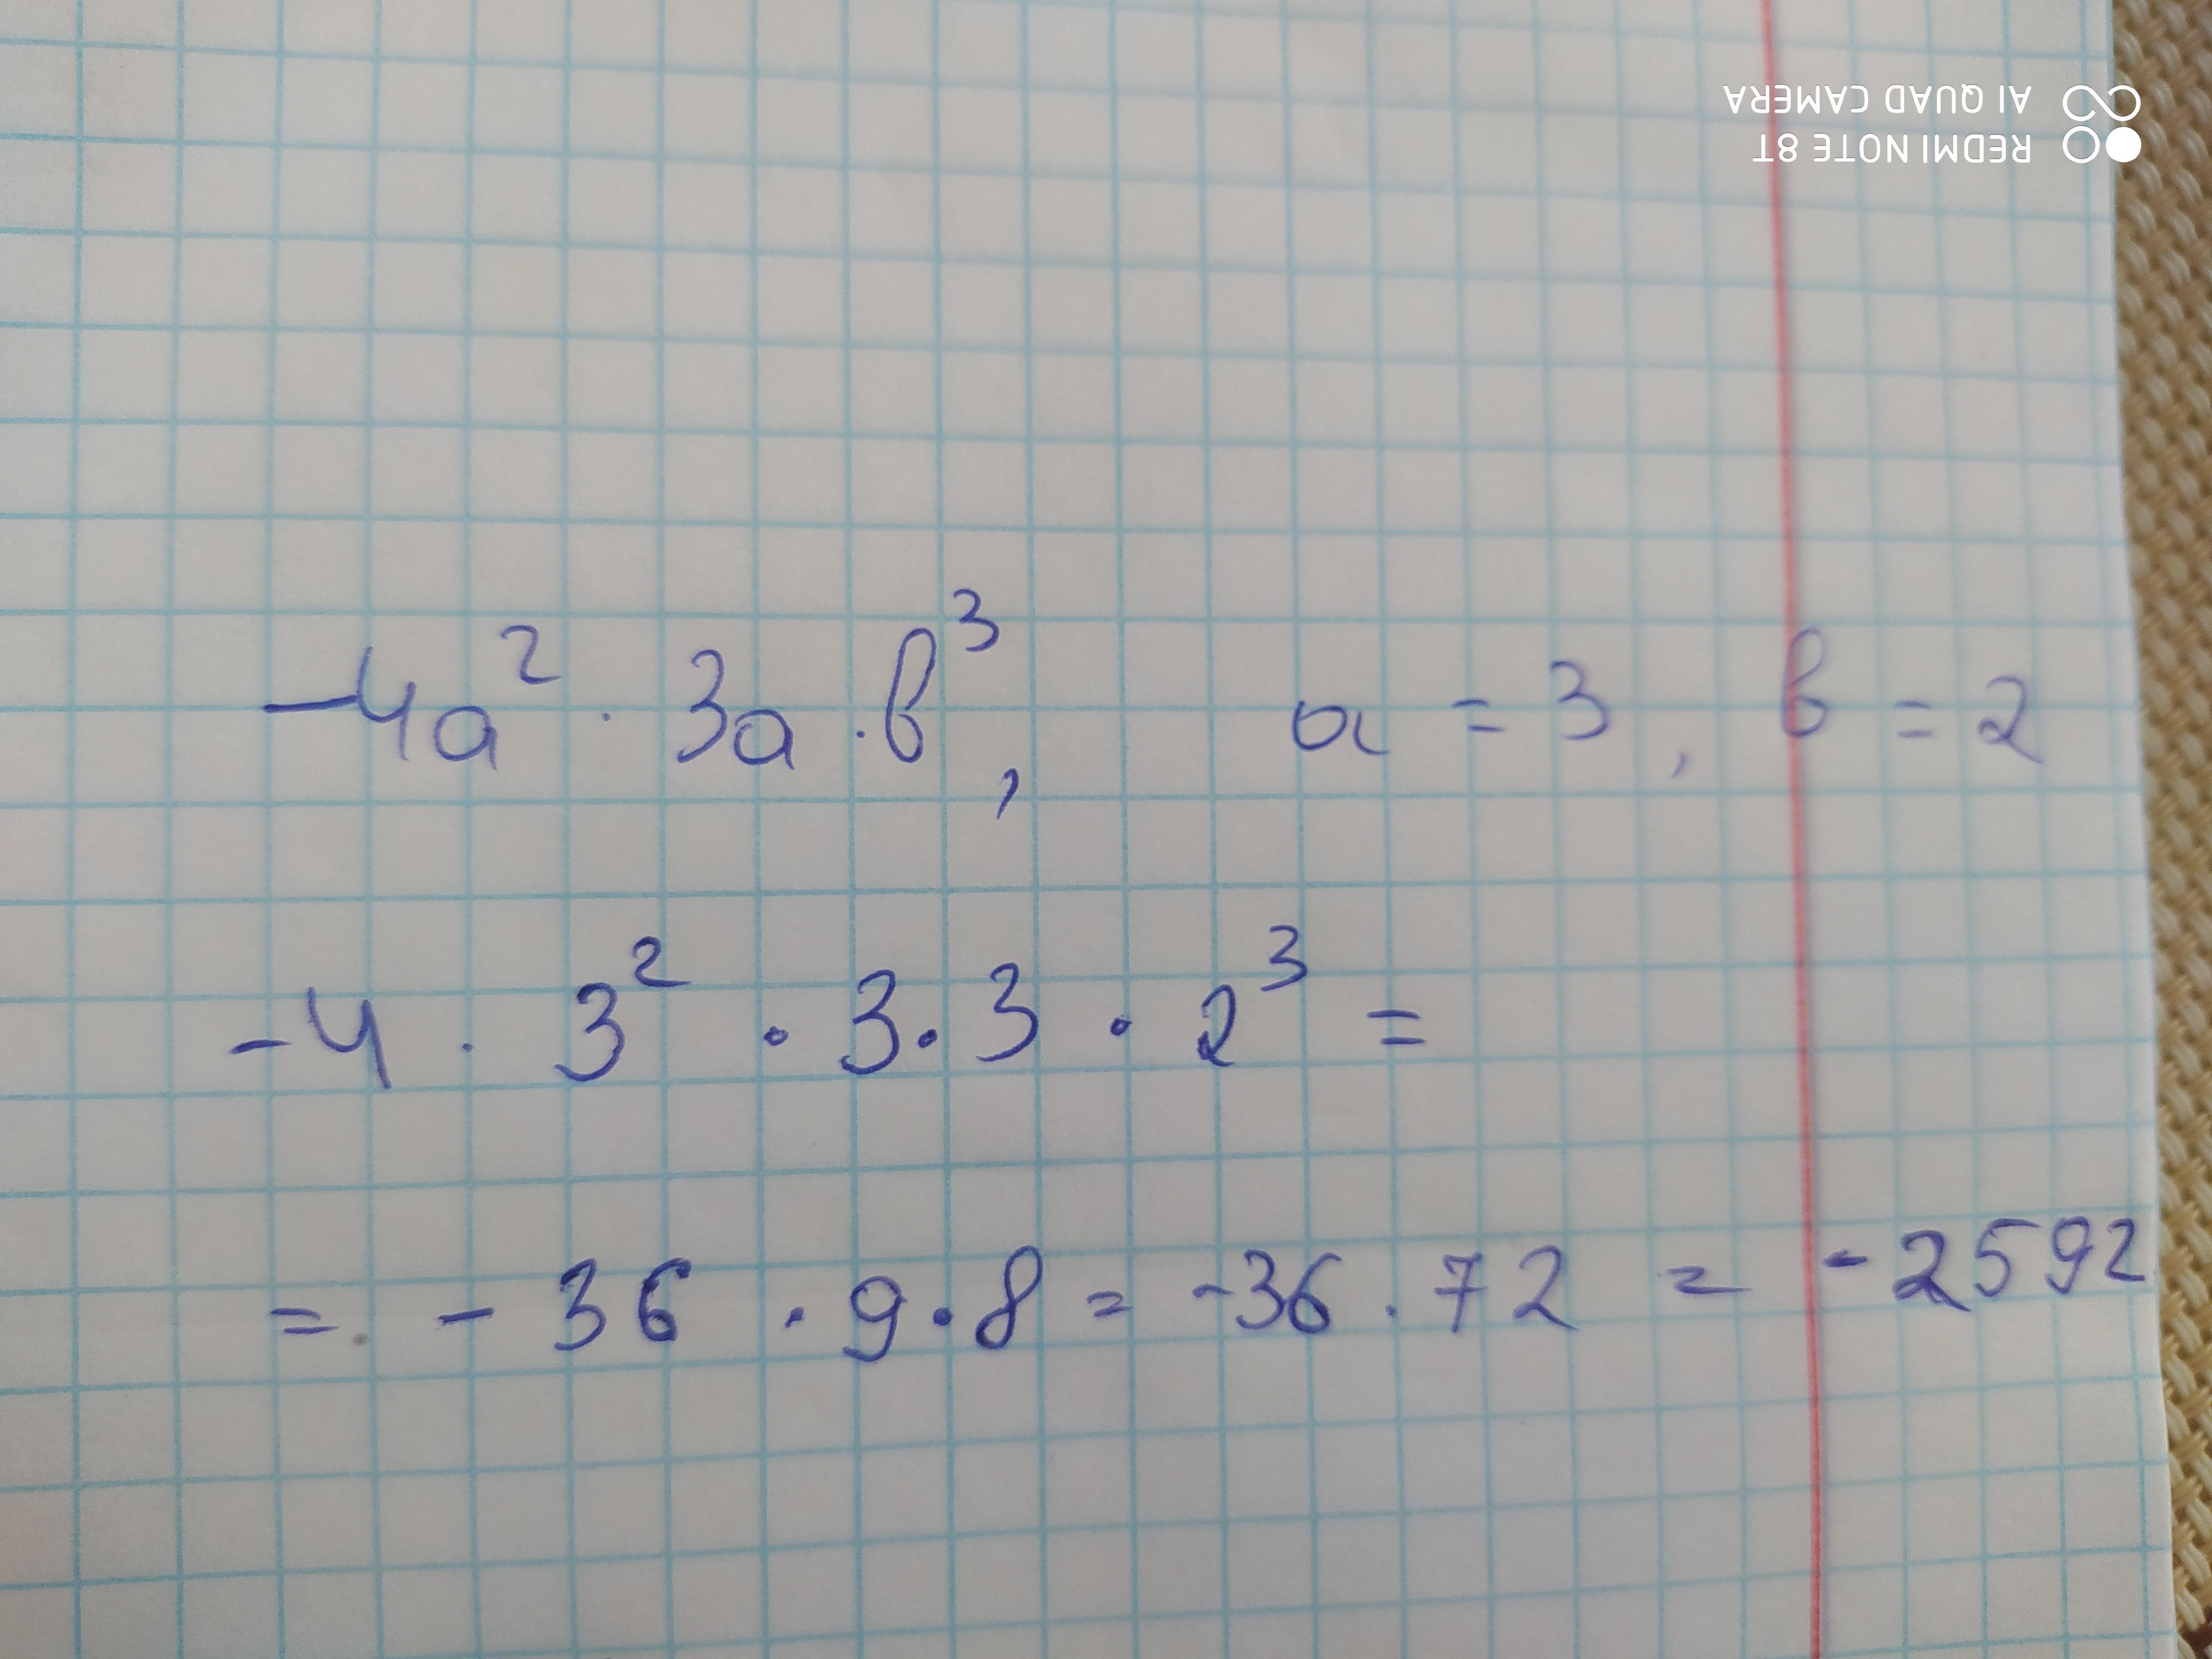 REDMI NOTE 8T
AI QUAD CAMERA
-4a² · 3a · в³, a = 3, в = 2
-4 · 3² · 3 · 3 · 2³ =
= -36 · 9 · 8 = -36 · 72 = -2592